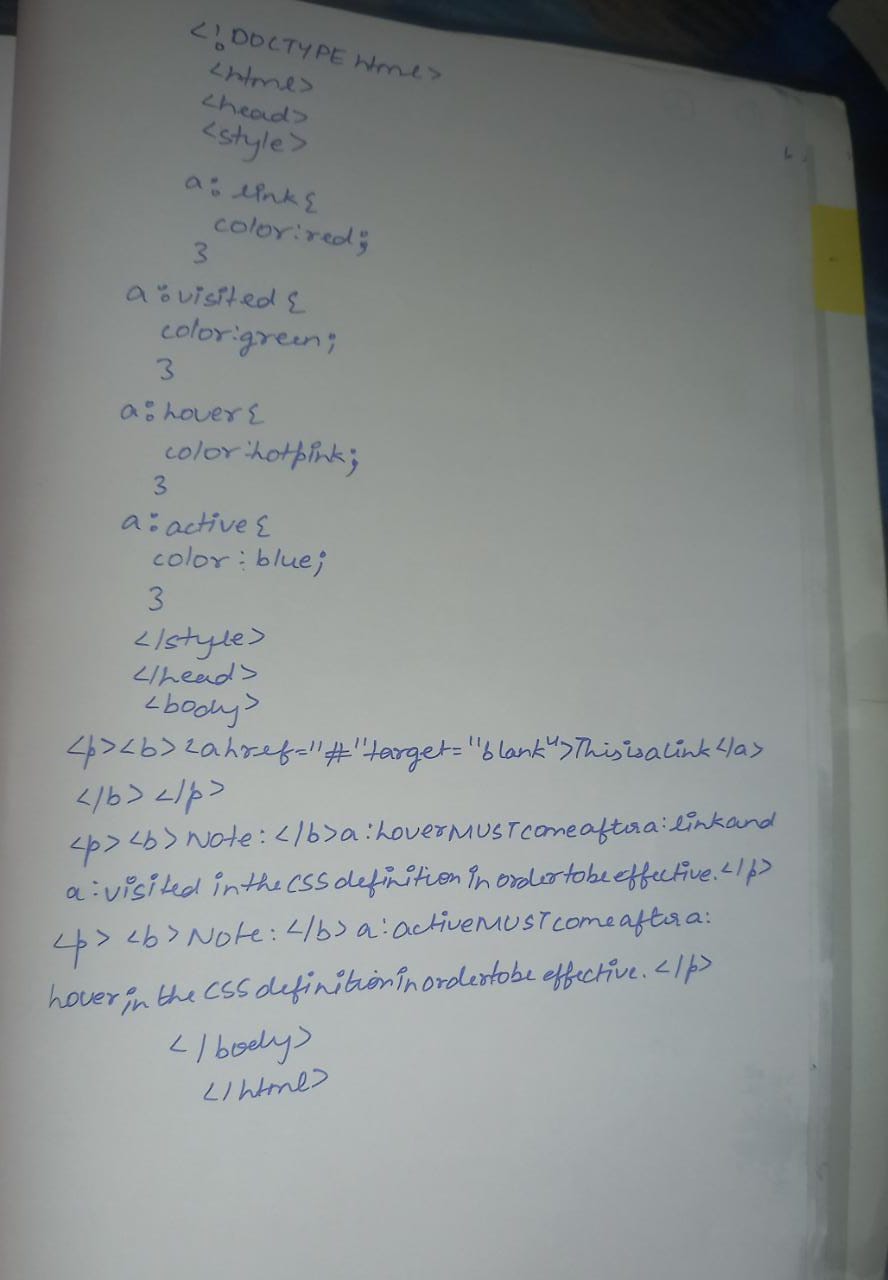 <!DOCTYPE html>
<html>
<head>
<style>
a: link{
color:red;
}
a:visited {
color:green;
}
a:hover{
color:hotpink;
}
a:active{
color: blue;
}
</style>
</head>
<body>
<p><b><a href="#"target="blank">This is a link</a>
</b></p>
<p><b>Note:</b>a:hover MUST come after a:link and
a:visited in the CSS definition in order to be effective.</p>
<p><b>Note:</b>a:active MUST come after a:
hover in the CSS definition in order to be effective.</p>
</body>
</html>